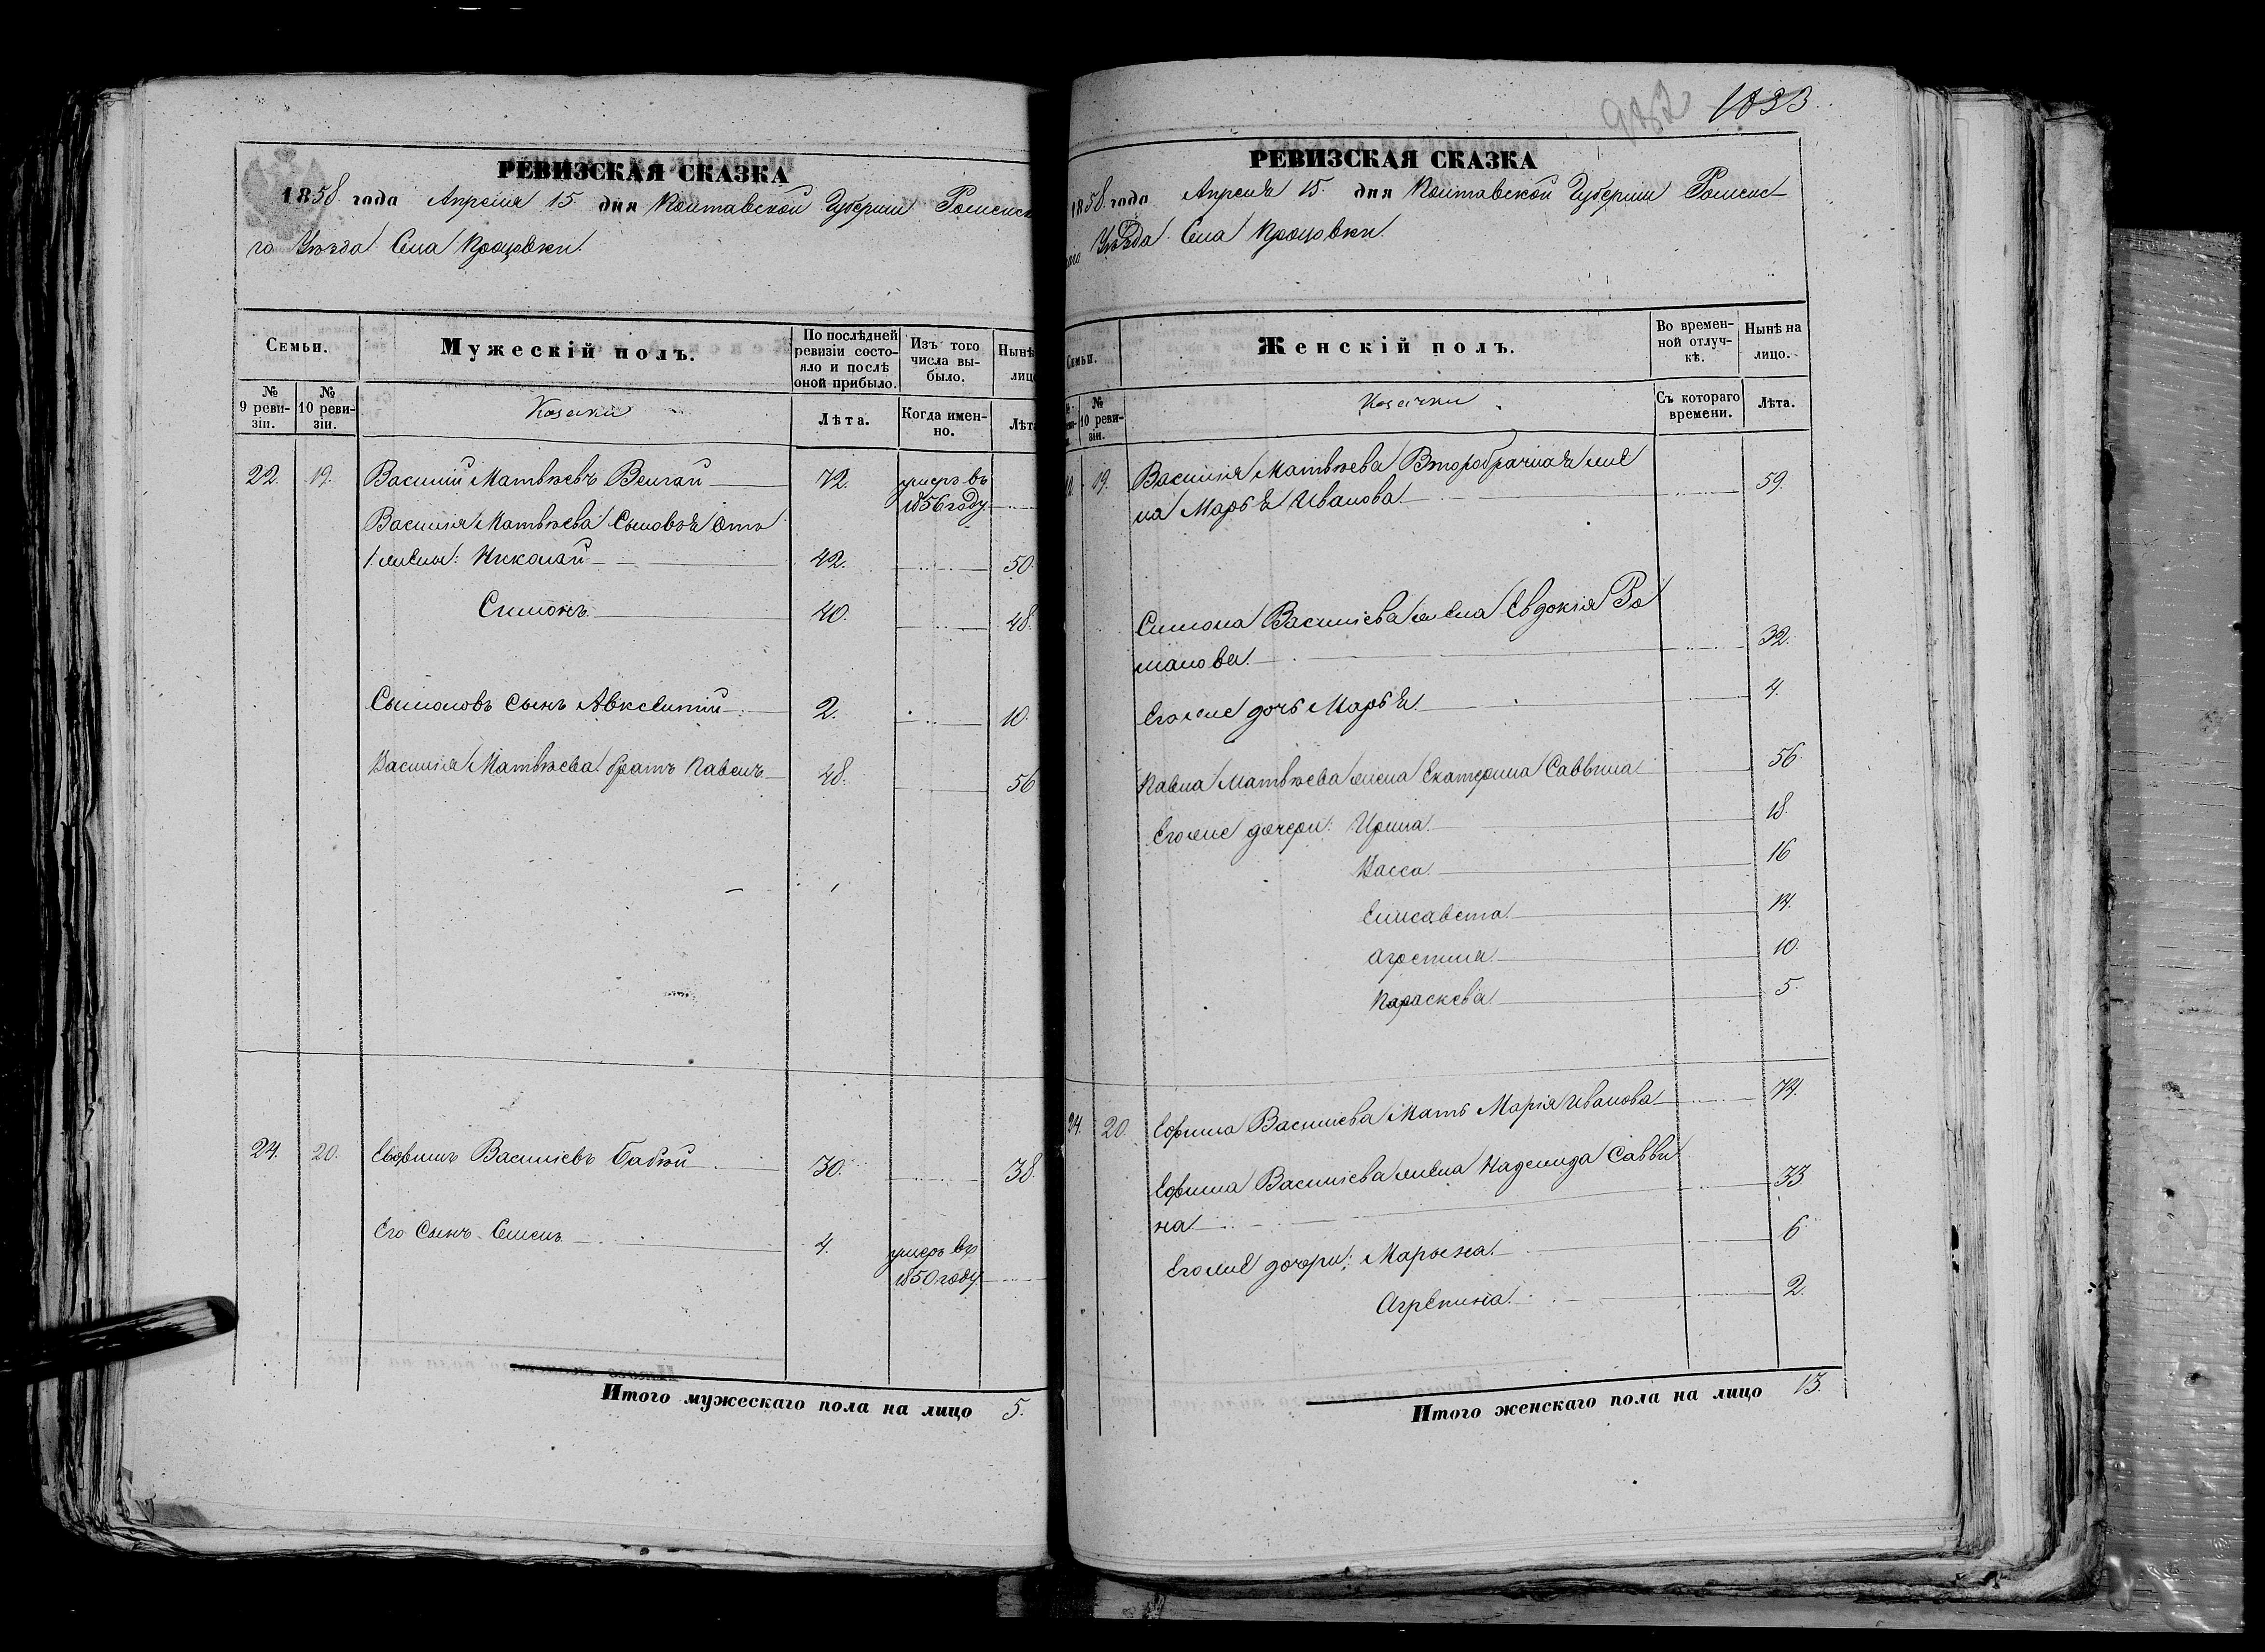 РЕВИЗСКАЯ СКАЗКА
1858 года Апреля 15 дня Полтавской Губернии Роменска
го Уѣзда Села Процовки.
Семьи.
Мужескій полъ.
По послѣдней ревизіи состояло и послѣ оной прибыло.
Изъ того числа выбыло.
Нынѣ
лицо
№ 9 ревизіи.
№ 10 ревизіи.
Козаки
Лѣта.
Когда именно.
Лѣта
22. 19. Василій Матвѣевъ Велгай 72. умеръ въ
1856 году
Василія Матвѣева Сыновья отъ
1 жены: Николай 42. 50.
Симонъ 40. 48.
Сымоновъ Сынъ Авксентій 2. 10.
Василія Матвѣева братъ Павелъ 48. 56
24. 20. Евфимъ Василіевъ Бабій 30. 38.
Его Сынъ Семенъ 4. умеръ въ
1850 году
Итого мужескаго пола на лицо 5.
982 1033
РЕВИЗСКАЯ СКАЗКА
1858 года Апреля 15. дня Полтавской Губерніи Роменс
каго Уѣзда Села Процовки.
Семьи.
Женскій полъ.
Во временной отлучкѣ.
Нынѣ на лицо.
№ 10 ревизіи.
Козачки
Съ котораго времени.
Лѣта.
19. Василія Матвѣева Второбрачная же
на Марья Иванова 59.
Симона Василіева жена Евдокія Ро
манова 32.
Его же дочь Марья 4.
Павла Матвѣева жена Екатерина Саввина 56.
Его же дочери: Ирина 18.
Васса 16
Елисавета 14.
Агрепина 10.
Параскева 5.
24. 20. Ефима Василіева Мать Марія Иванова 74.
Ефима Василіева жена Надежда Савви
на 33
Его же дочери: Марьяна 6
Агрепина 2.
Итого женскаго пола на лицо 13.